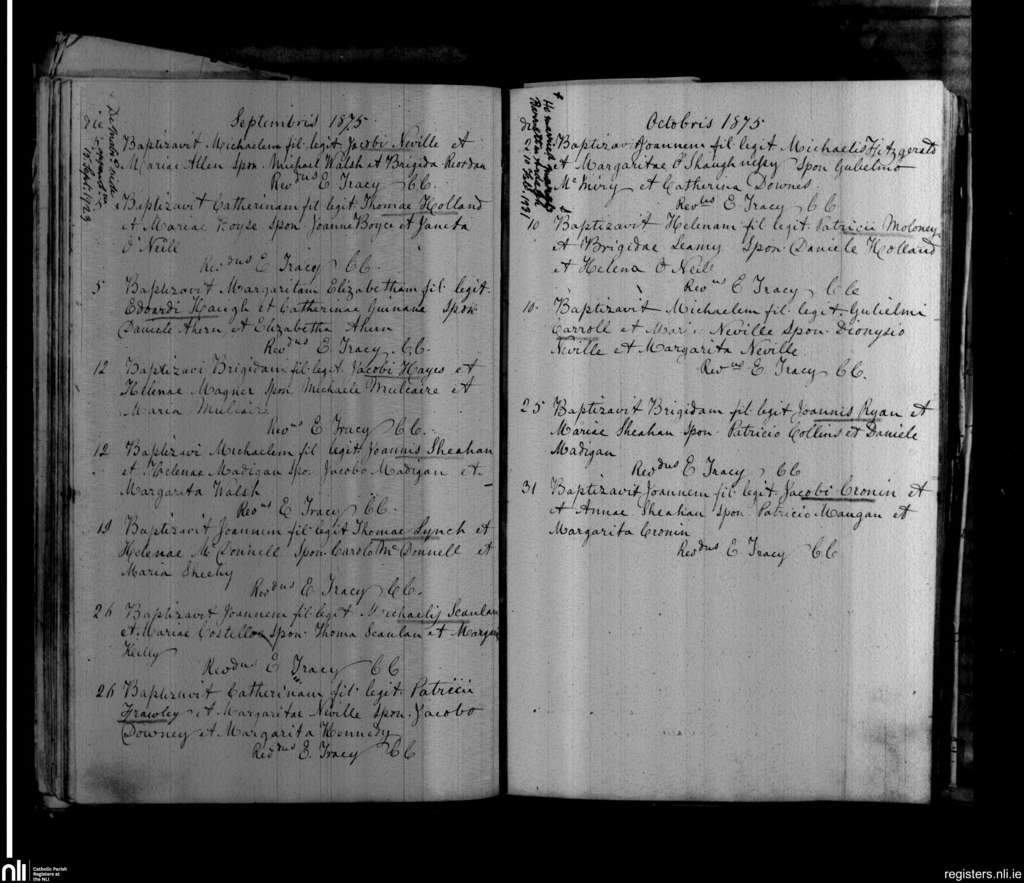 Septembris 1875
die Baptizavit Michaelem fil legit Jacobi Neville et
Mariae Allen Spon. Michael Walsh et Brigida Riordan
Revdus E Tracy CC.
Baptizavit Catherinam fil legit Thomae Holland
et Mariae Boyse Spon Joanne Boyce et
O'Neill
Revdus E Tracy CC.
5 Baptizavit Margaritam Elizabetham fil legit
Edoardi Haugh et Catherinae Guinane Spon
Daniele Ahern et Elizabetha Ahern
Revdus E Tracy CC.
12 Baptizavi Brigidam fil legit Jacobi Hayes et
Helenae Magner Spon Michaele Mulcaire et
Maria Mulcaire
Revdus E Tracy CC.
12 Baptizavi Michaelem fil legit Joannis Sheahan
et Helenae Madigan Spo. Jacobo Madigan et
Margarita Walsh
Revus E Tracy CC.
19 Baptizavit Joannem fil legit Thomae Lynch et
Helenae McDonnell Spon Carolo McDonnell et
Maria Sheehy
Revdus E Tracy CC.
26 Baptizavit Joannem fil legit Michaelis Scanlan
et Mariae Costelloe Spon Thoma Scanlan et
Kielly
Revdus E Tracy CC
26 Baptizavit Catherinam fil legit Patricii
Frawley et Margaritae Neville Spon. Jacobo
Downey et Margarita Kennedy
Revdus E. Tracy CC
Octobris 1875
die Baptizavi Joannem fil legit Michaelis Fitzgerald
et Margaritae O'Shaughnessy Spon Gulielmo
et Catherina Downes
Revus E Tracy CC
10 Baptizavit Helenam fil legit Patricii Moloney
et Brigidae Leamy Spon Daniele Holland
et Helena O Neill
Revus E Tracy CC
10 Baptizavit Michaelem fil legit Gulielmi
Carroll et Neville Spon Dionysio
Neville et Margarita Neville
Revus E. Tracy CC.
25 Baptizavit Brigidam fil legit Joannis Ryan et
Mariae Sheahan Spon Patricio Collins et Daniele
Madigan
Revdus E Tracy CC
31 Baptizavit Joannem fil legit Jacobi Cronin et
et Annae Sheahan Spon Patricio Mangan et
Margarita Cronin
Revdus E Tracy CC
nli
Catholic Parish
Registers at
the NLI
registers.nli.ie